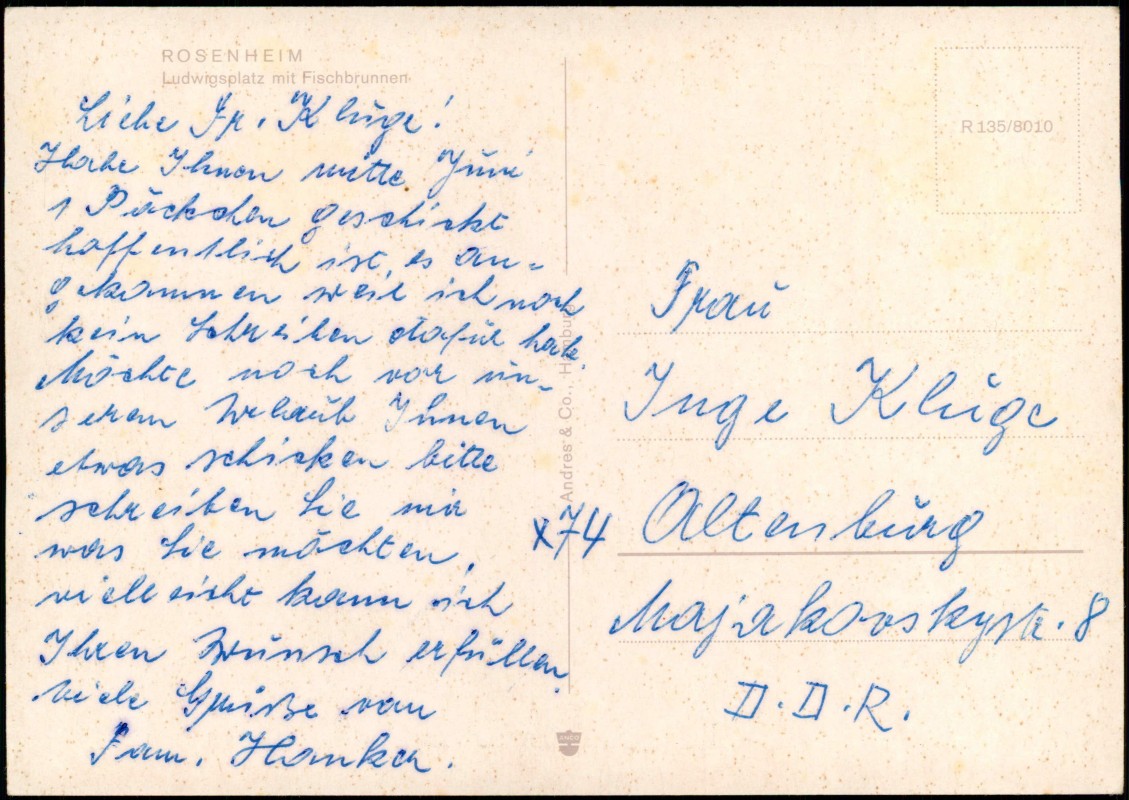 ROSENHEIM
Ludwigsplatz mit Fischbrunnen
Liebe Fr. Kluge!
Habe Ihnen mitte Juni
1 Päckchen geschickt
hoffentlich ist es an-
gekommen weil ich noch
kein Schreiben dafür habe.
Möchte noch vor un-
seren Urlaub Ihnen
etwas schicken bitte
schreiben Sie mir
was Sie möchten,
vielleicht kann ich
Ihren Wunsch erfüllen.
Viele Grüße von
Fam.
Andres & Co., Hamburg
R 135/8010
Frau
Inge Kluge
X74 Altenburg
Majakovskystr. 8
D.D.R.